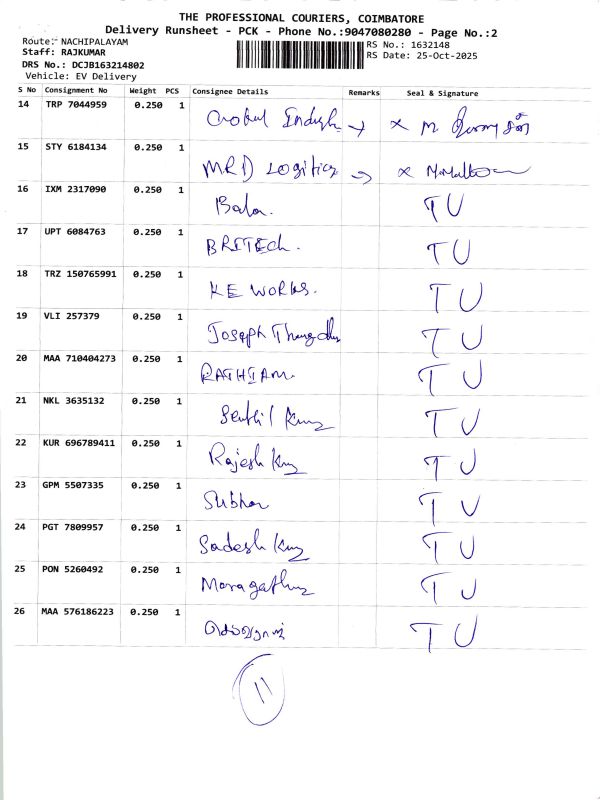 THE PROFESSIONAL COURIERS, COIMBATORE
Delivery Runsheet - PCK - Phone No.:9047080280 - Page No.:2
Route: NACHIPALAYAM
Staff: RAJKUMAR
DRS No.: DCJB163214802
Vehicle: EV Delivery
RS No.: 1632148
RS Date: 25-Oct-2025
S No Consignment No Weight PCS Consignee Details Remarks Seal & Signature
14 TRP 7044959 0.250 1
15 STY 6184134 0.250 1 MRD Logitics →
16 IXM 2317090 0.250 1 Bala. TU
17 UPT 6084763 0.250 1 BRITECH. TU
18 TRZ 150765991 0.250 1 KE WORKS. TU
19 VLI 257379 0.250 1 Joseph TU
20 MAA 710404273 0.250 1 TU
21 NKL 3635132 0.250 1 Senthil TU
22 KUR 696789411 0.250 1 Rajesh TU
23 GPM 5507335 0.250 1 TU
24 PGT 7809957 0.250 1 Sadesh TU
25 PON 5260492 0.250 1 TU
26 MAA 576186223 0.250 1 TU
11